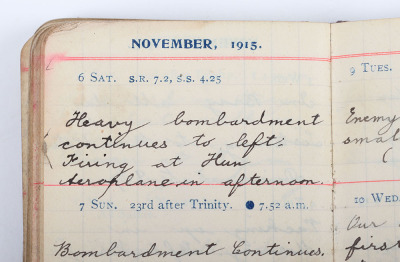 NOVEMBER, 1915.
6 SAT. S.R. 7.2, S.S. 4.25
Heavy bombardment
continues to left.
Firing at Hun
Aeroplane in afternoon.
7 SUN. 23rd after Trinity. ● 7.52 a.m.
Bombardment Continues.
9 TUES.
Enemy
smal
(
10 WED.
Our
firs